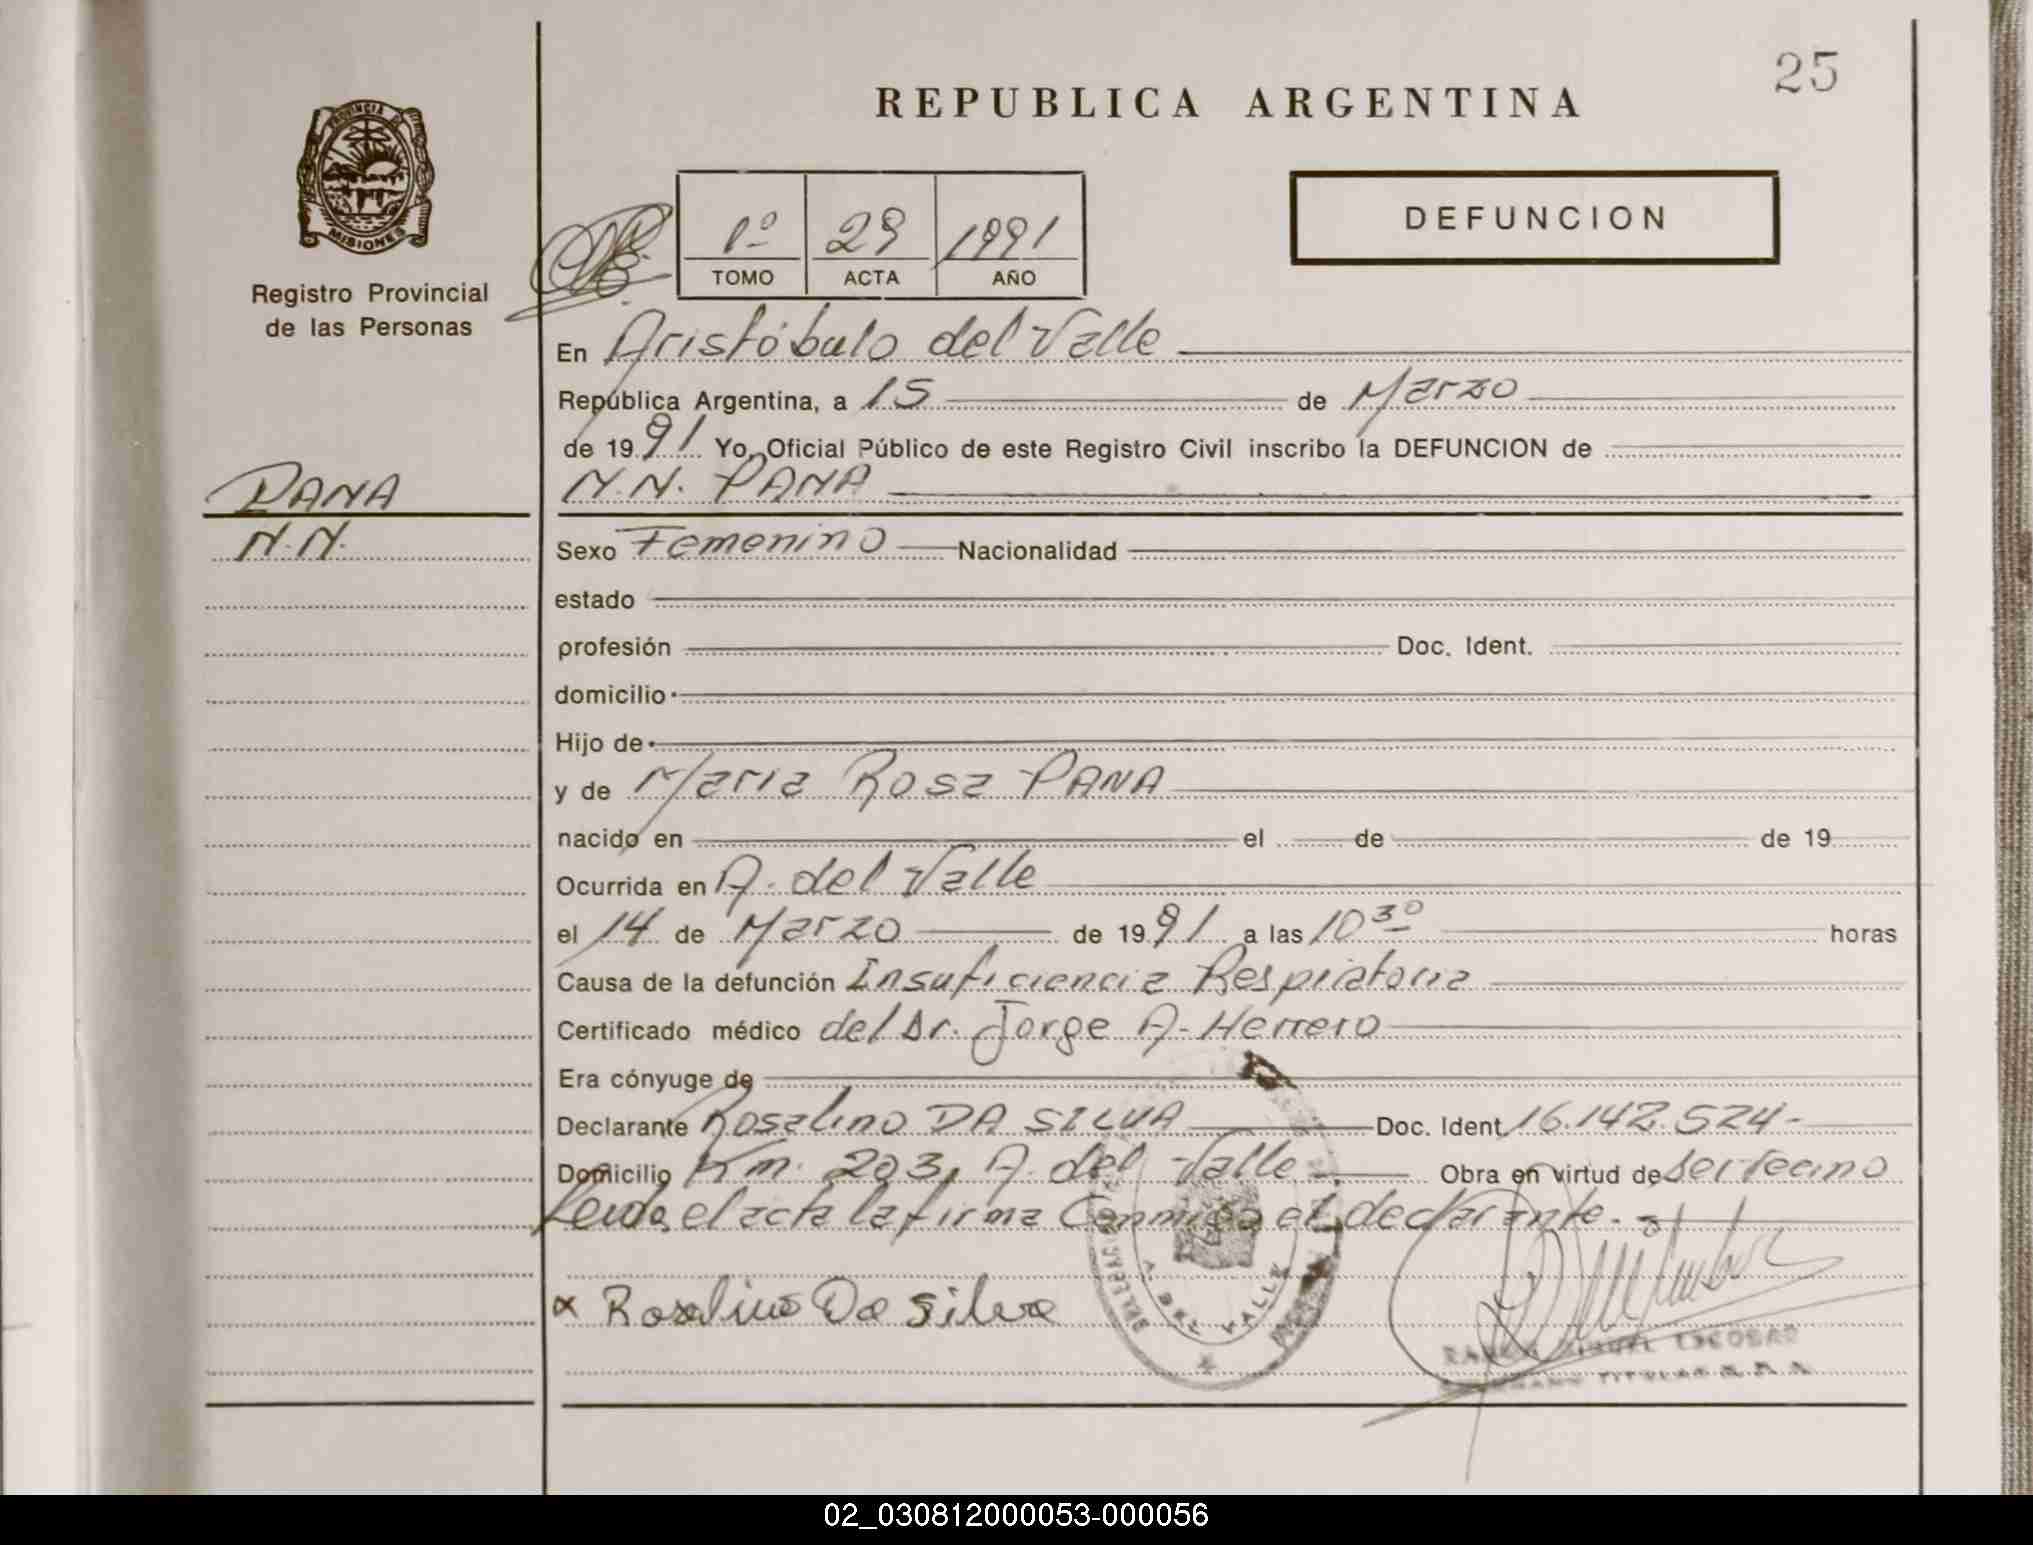 25
REPUBLICA ARGENTINA
PROVINCIA DE
MISIONES
Registro Provincial
de las Personas
1º 29 1991
TOMO ACTA AÑO
DEFUNCION
En Aristóbulo del Valle
República Argentina, a 15 de Marzo
de 1991 Yo, Oficial Público de este Registro Civil inscribo la DEFUNCION de
PANA
N.N. PANA
N.N.
Sexo Femenino Nacionalidad
estado
profesión Doc. Ident.
domicilio
Hijo de
y de Maria Rosa PANA
nacido en el de de 19
Ocurrida en A. del Valle
el 14 de Marzo de 1991 a las 10 30 horas
Causa de la defunción Insuficiencia Respiratoria
Certificado médico del Dr. Jorge A. Herrero
Era cónyuge de
Declarante Rosalino DA SILVA Doc. Ident. 16.142.524-
Domicilio Km. 203, A. del Valle Obra en virtud de ser vecino
Leida el acta la firma Conmigo el declarante.
x Rosalino Da Silva
A. DEL VALLE
MIGUEL ESCOBAR
TITULAR
02_030812000053-000056